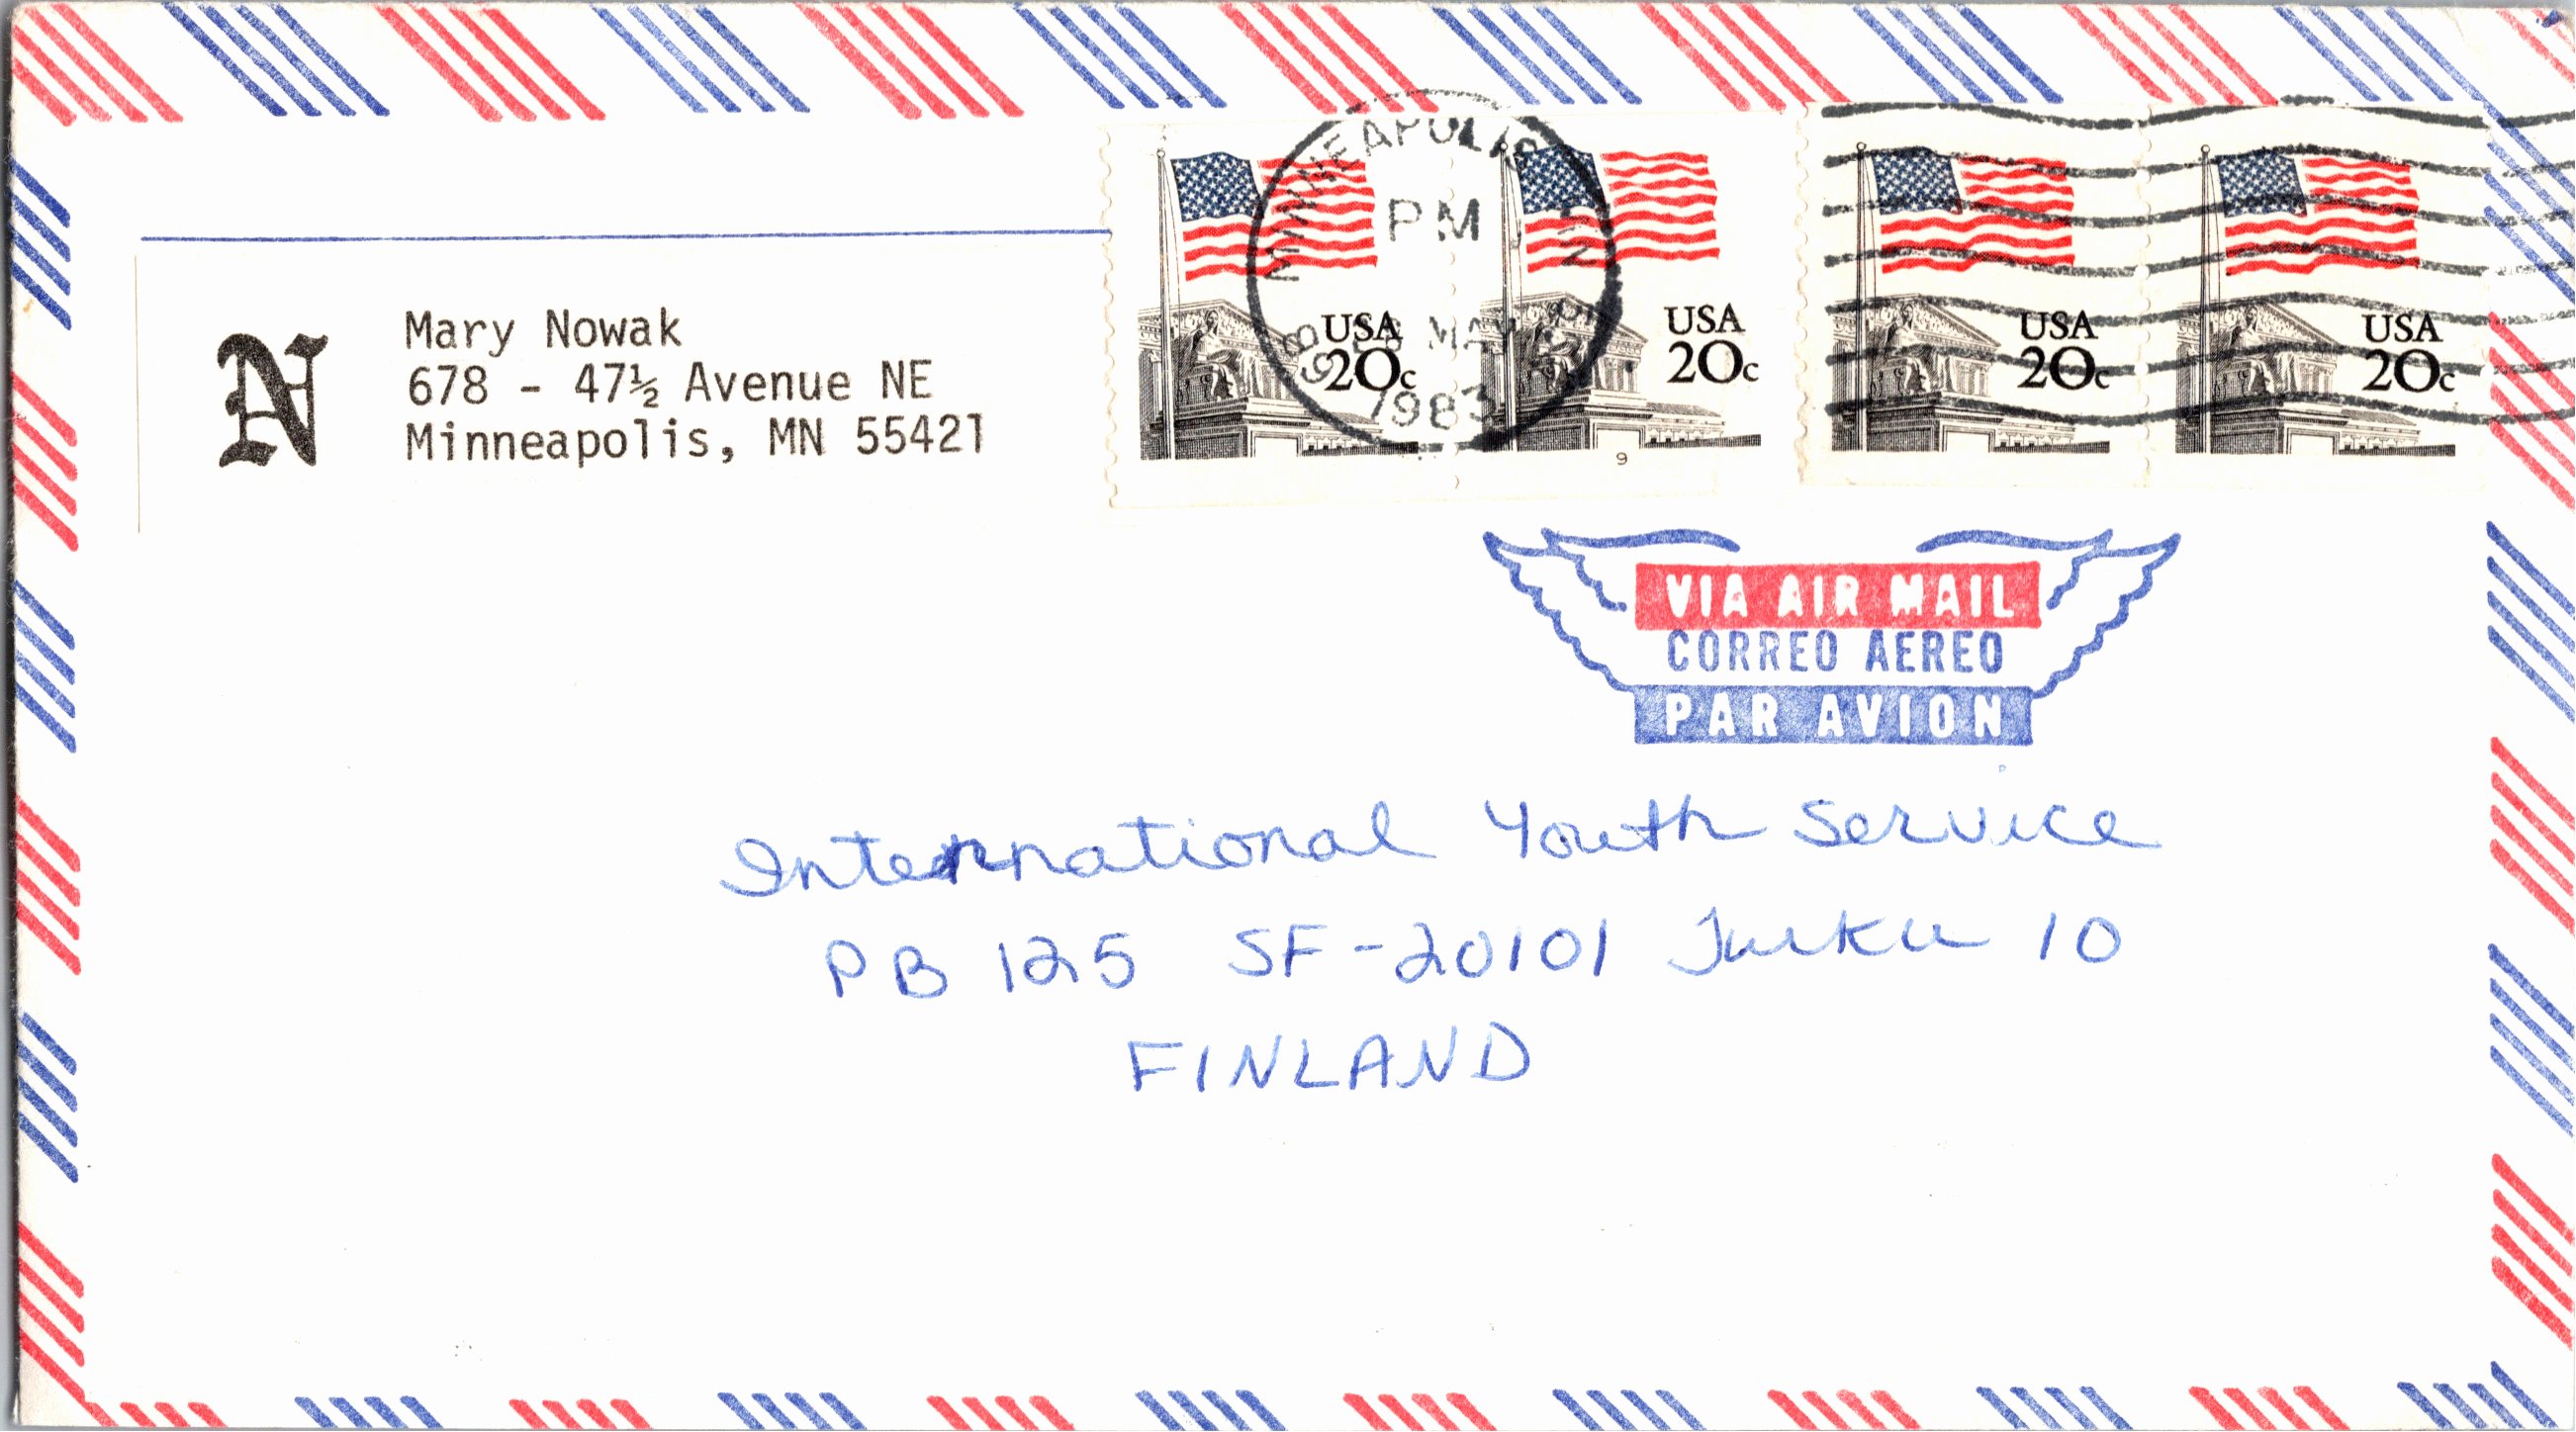 N
Mary Nowak
678 - 47½ Avenue NE
Minneapolis, MN 55421
MINNEAPOLIS MN
PM
MAY
1983
USA
20c
USA
20c
9
USA
20c
USA
20c
VIA AIR MAIL
CORREO AEREO
PAR AVION
International Youth Service
PB 125 SF-20101 Turku 10
FINLAND